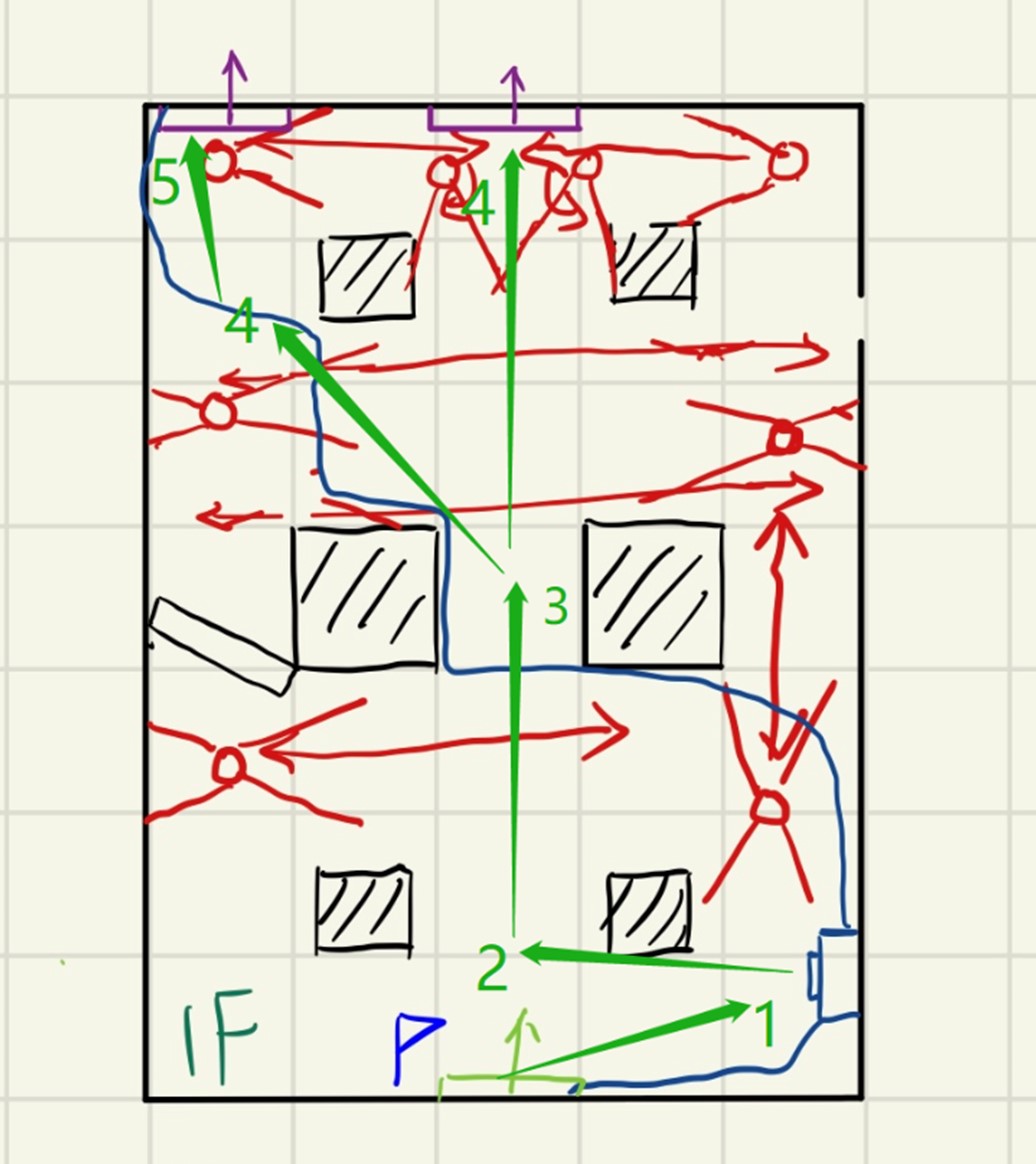 5
4
4
3
2
1
1F
P